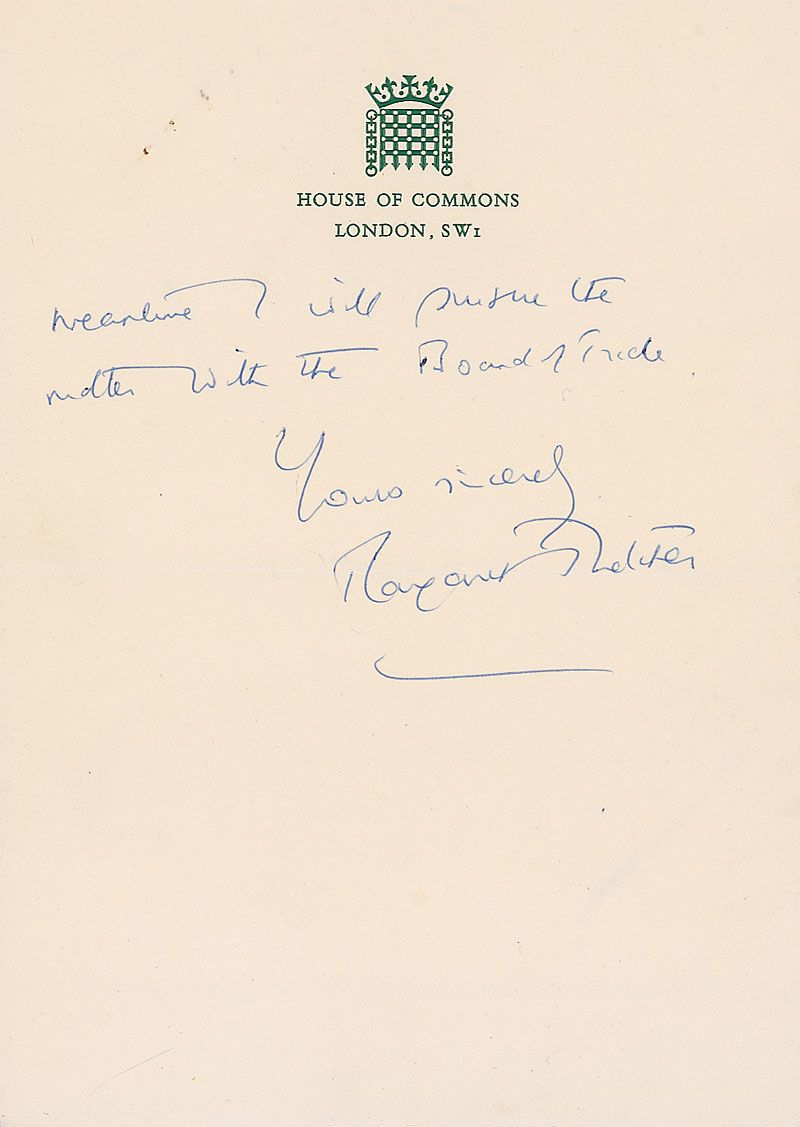 HOUSE OF COMMONS
LONDON, SW1
meantime I will pursue the
matter with the Board of Trade.
Yours sincerely
Margaret Thatcher